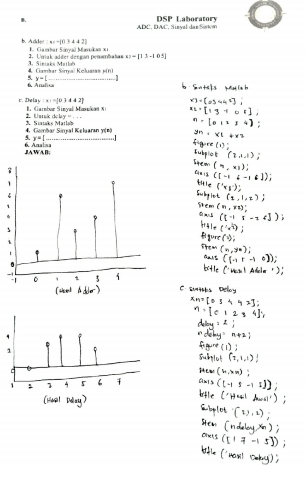 B.
DSP Laboratory
ADC, DAC, Sinyal dan Sistem
b. Adder : x1 =[0 3 4 4 2]
1. Gambar Sinyal Masukan x1
2. Untuk adder dengan penambahan x2 = [1 3 -1 0 5]
3. Sintaks Matlab
4. Gambar Sinyal Keluaran y(n)
5. y = [.......................]
6. Analisa
c. Delay : x1 =[0 3 4 4 2]
1. Gambar Sinyal Masukan x1
2. Untuk delay = . . .
3. Sintaks Matlab
4. Gambar Sinyal Keluaran y(n)
5. y = [.......................]
6. Analisa
JAWAB:
(Hasil Adder)
(Hasil Delay)
b. Sintaks Matlab
x1=[0 3 4 4 2];
n = [0 1 2 3 4];
yn = x1 + x2
figure (1);
subplot (2,1,1);
stem (n, x1);
axis ([-1 5 -1 5]);
title ('x1');
subplot (2,1,2);
stem (n, x2);
axis ([-1 5 -2 6]);
title ('x2');
figure(2);
stem (n,yn);
title ('Hasil Adder');
C. Sintaks Delay
xn=[0 3 4 4 2];
n = [0 1 2 3 4];
delay= 2;
ndelay= n+2;
figure (1);
subplot (2,1,1);
stem (n,xn);
axis ([-1 5 -1 5]);
title ('Hasil Awal');
subplot (2,1,2);
stem (ndelay,xn);
axis ([1 7 -1 5]);
title ('Hasil Delay');